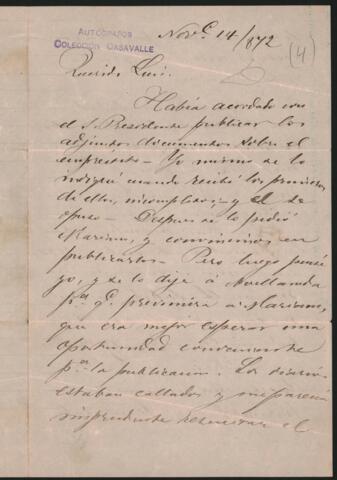 AUTÓGRAFOS
COLECCION CASAVALLE
Nov.e 14/872
(4)
Querido Luis.
Había acordado con
el S. Presidente publicar los
adjuntos documentos sobre el
empresto— Yo mismo se lo
indiqué cuando recibí los primeros
de ellos, incompletos;— y él se
opuso— Despues se lo pidió
Mariano, y convinimos en
publicarlos— Pero luego pensé
yo, y se lo dije á Avellaneda
pa. q. previniera á Mariano,
que era mejor esperar una
oportunidad conveniente
pa. la publicacion. Los diarios
estaban callados y me parecía
imprudente el